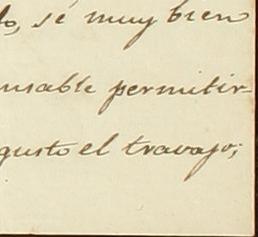 lo, sé muy bien
nsable permitir-
gusto el travajo;